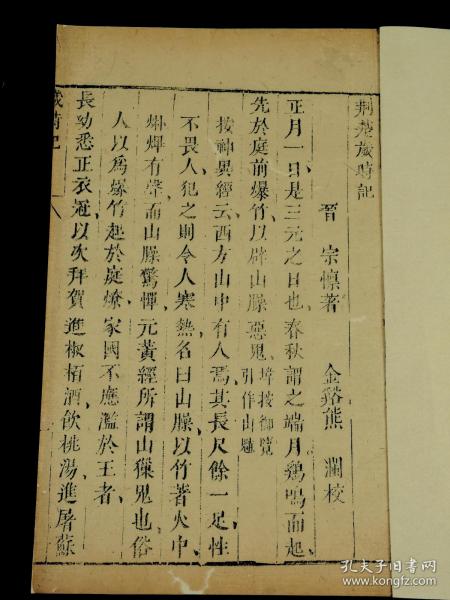 荊楚歲時記
晉 宗懍著 金谿熊 瀾校
正月一日是三元之日也春秋謂之端月鷄鳴而起
先於庭前爆竹以辟山臊惡鬼 埻按御覽引作山魈
按神異經云西方山中有人焉其長尺餘一足性
不畏人犯之則令人寒熱名曰山臊以竹著火中
烞熚有聲而山臊驚憚元黃經所謂山𤢖鬼也俗
人以爲爆竹起於庭燎家國不應濫於王者
長幼悉正衣冠以次拜賀進椒栢酒飲桃湯進屠蘇
歲時記
孔夫子旧书网
www.kongfz.com